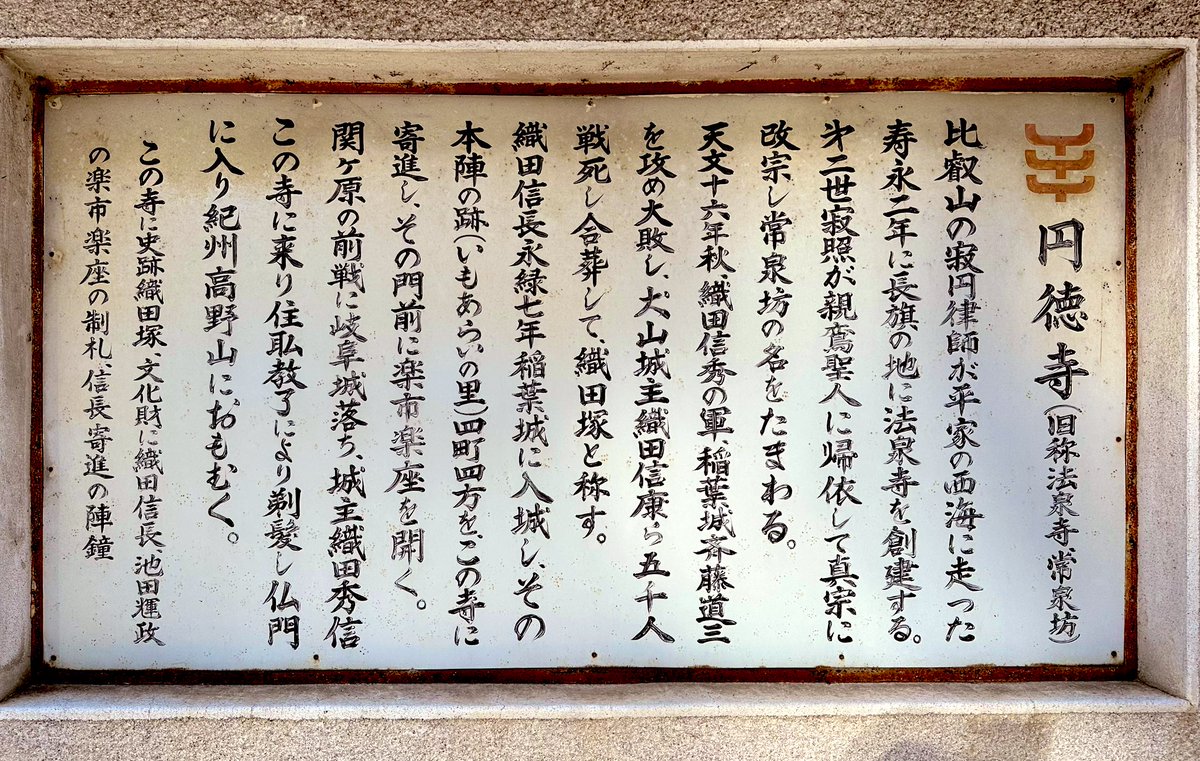 円徳寺(旧称法泉寺常泉坊)
比叡山の寂円律師が平家の西海に走った
寿永二年に長旗の地に法泉寺を創建する。
㐧二世寂照が親鸞聖人に帰依して真宗に
改宗し常泉坊の名をたまわる。
天文十六年秋、織田信秀の軍、稲葉城斉藤道三
を攻め大敗し、犬山城主織田信康ら五千人
戦死し合葬して、織田塚と称す。
織田信長永緑七年稲葉城に入城し、その
本陣の跡(いもあらいの里)四町四方を、この寺に
寄進し、その門前に楽市楽座を開く。
関ヶ原の前戦に岐阜城落ち、城主織田秀信
この寺に来り住耴教了により剃髪し仏門
に入り紀州高野山におもむく。
この寺に史跡織田塚、文化財に織田信長、池田輝政
の楽市楽座の制札、信長寄進の陣鐘